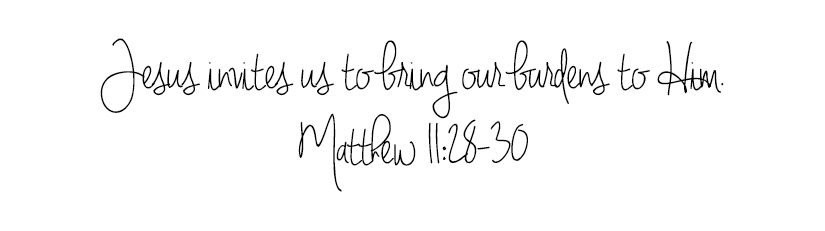 Jesus invites us to bring our burdens to Him.
Matthew 11:28-30